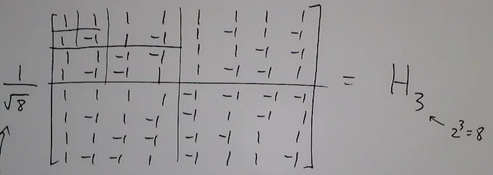 1 1 1 1 1 1 1 1
1 -1 1 -1 1 -1 1 -1
1 1 -1 -1 1 1 -1 -1
1 -1 -1 1 1 -1 -1 1
1/√8 = H₃
1 1 1 1 -1 -1 -1 -1
1 -1 1 -1 -1 1 -1 1
1 1 -1 -1 -1 -1 1 1
1 -1 -1 1 -1 1 1 -1
2³=8